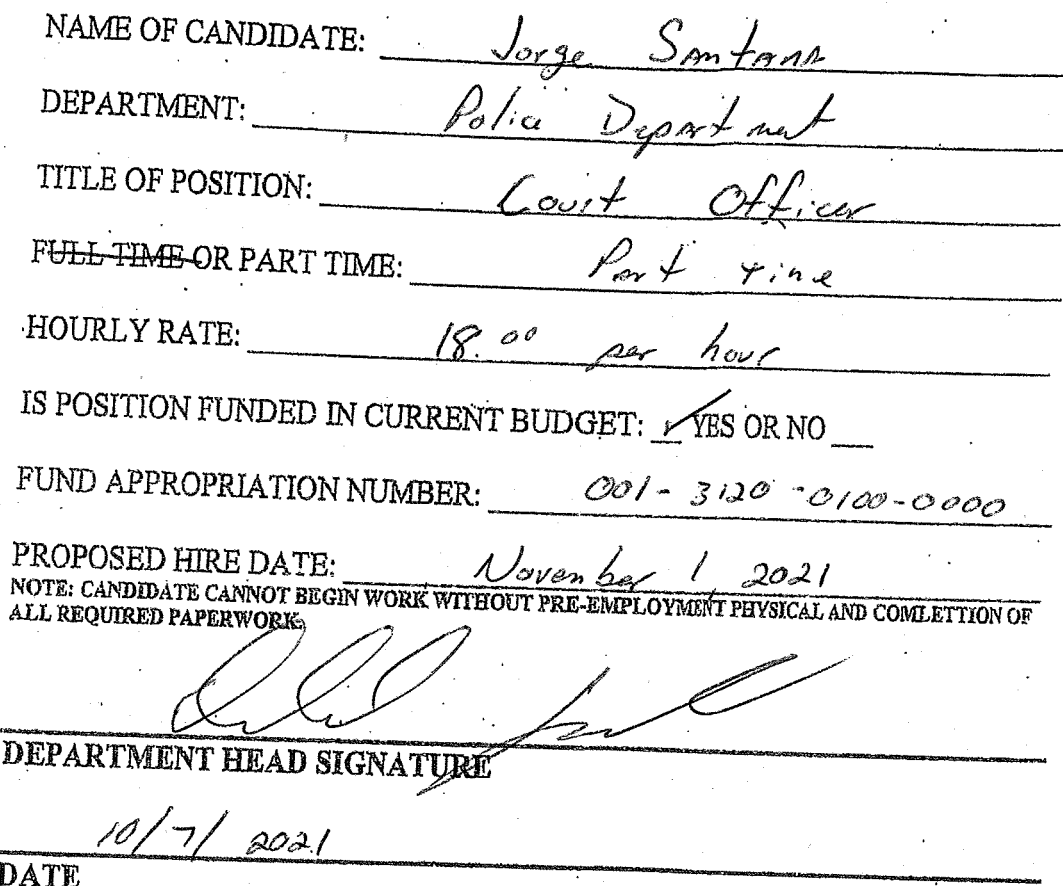 NAME OF CANDIDATE: Jorge Santana
DEPARTMENT: Police Department
TITLE OF POSITION: Court Officer
FULL TIME OR PART TIME: Part time
HOURLY RATE: 18.00 per hour
IS POSITION FUNDED IN CURRENT BUDGET: ✓ YES OR NO __
FUND APPROPRIATION NUMBER: 001-3120-0100-0000
PROPOSED HIRE DATE: November 1, 2021
NOTE: CANDIDATE CANNOT BEGIN WORK WITHOUT PRE-EMPLOYMENT PHYSICAL AND COMLETTION OF
ALL REQUIRED PAPERWORK.
DEPARTMENT HEAD SIGNATURE
10/7/2021
DATE